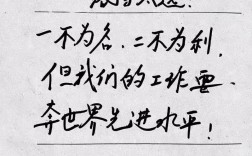 一不为名,二不为利,
但我们的工作要
奔世界先进水平!